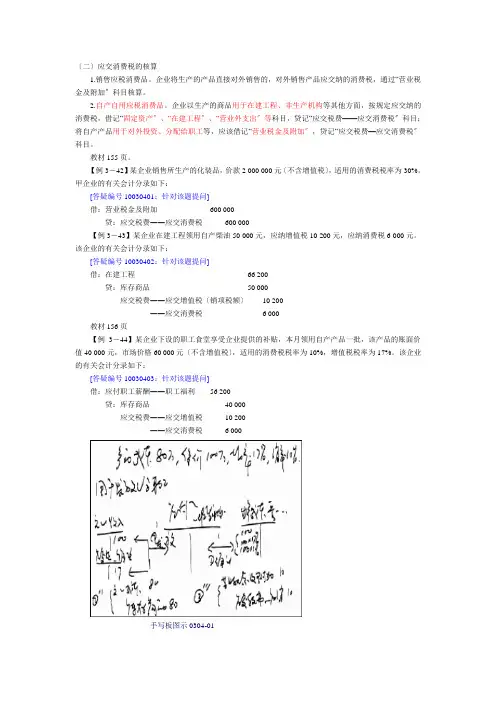 〔二〕应交消费税的核算
1.销售应税消费品。企业将生产的产品直接对外销售的，对外销售产品应交纳的消费税，通过“营业税
金及附加〞科目核算。
2.自产自用应税消费品。企业以生产的商品用于在建工程、非生产机构等其他方面，按规定应交纳的
消费税，借记“固定资产〞、“在建工程〞、“营业外支出〞等科目，贷记“应交税费——应交消费税〞科目；
将自产产品用于对外投资、分配给职工等，应该借记“营业税金及附加〞，贷记“应交税费—应交消费税〞
科目。
教材155页。
【例3－42】某企业销售所生产的化装品，价款2 000 000元〔不含增值税〕，适用的消费税税率为30%。
甲企业的有关会计分录如下：
[答疑编号10030401：针对该题提问]
借：营业税金及附加 600 000
贷：应交税费——应交消费税 600 000
【例3－43】某企业在建工程领用自产柴油50 000元，应纳增值税10 200元，应纳消费税6 000元。
该企业的有关会计分录如下：
[答疑编号10030402：针对该题提问]
借：在建工程 66 200
贷：库存商品 50 000
应交税费——应交增值税〔销项税额〕 10 200
——应交消费税 6 000
教材156页
【例3－44】某企业下设的职工食堂享受企业提供的补贴，本月领用自产产品一批，该产品的账面价
值40 000元，市场价格60 000元〔不含增值税〕，适用的消费税税率为10%，增值税税率为17%。该企业
的有关会计分录如下：
[答疑编号10030403：针对该题提问]
借：应付职工薪酬——职工福利 56 200
贷：库存商品 40 000
应交税费——应交增值税 10 200
——应交消费税 6 000
手写板图示0304-01